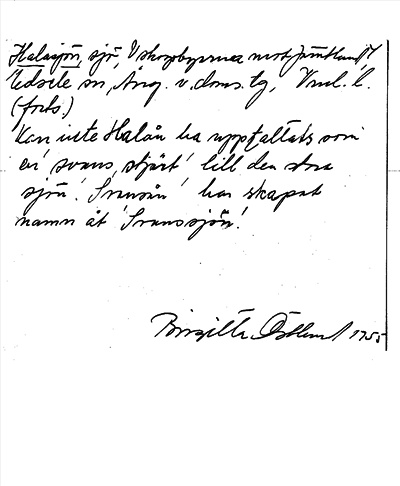 Halasjön, sjö, V skogsbyarna mot Jämtland?
Edsele sn, Ång. v. doms. tg, Vnl. l.
(forts.)
Kan inte Halån ha uppfattats som
en 'svans, stjärt' till den stora
sjön? 'Svansån' har skapat
namn åt 'Svanssjön'.
Birgitta Östlund 1955